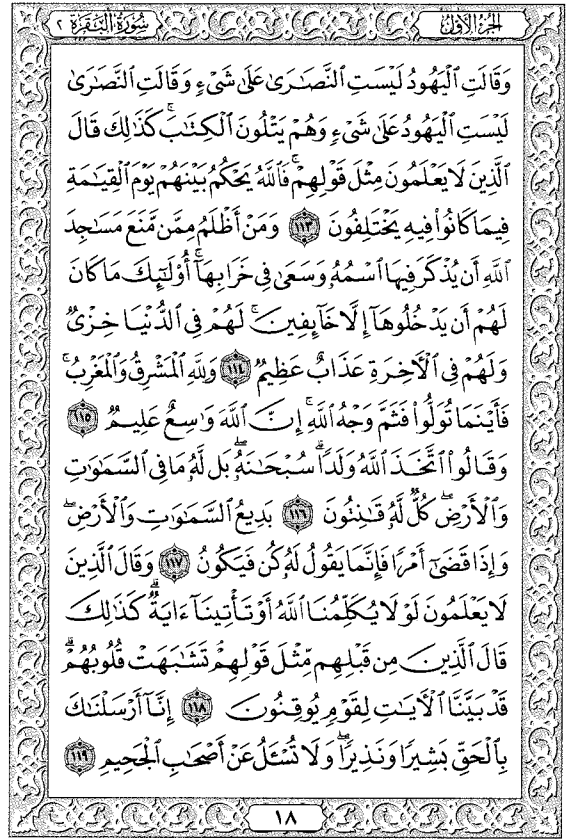 الجزء الأول
سورة البقرة ٢
وَقَالَتِ ٱلۡيَهُودُ لَيۡسَتِ ٱلنَّصَـٰرَىٰ عَلَىٰ شَىۡءٖ وَقَالَتِ ٱلنَّصَـٰرَىٰ
لَيۡسَتِ ٱلۡيَهُودُ عَلَىٰ شَىۡءٖ وَهُمۡ يَتۡلُونَ ٱلۡكِتَـٰبَۗ كَذَٰلِكَ قَالَ
ٱلَّذِينَ لَا يَعۡلَمُونَ مِثۡلَ قَوۡلِهِمۡۚ فَٱللَّهُ يَحۡكُمُ بَيۡنَهُمۡ يَوۡمَ ٱلۡقِيَـٰمَةِ
فِيمَا كَانُواْ فِيهِ يَخۡتَلِفُونَ ١١٣ وَمَنۡ أَظۡلَمُ مِمَّن مَّنَعَ مَسَـٰجِدَ
ٱللَّهِ أَن يُذۡكَرَ فِيهَا ٱسۡمُهُۥ وَسَعَىٰ فِى خَرَابِهَآۚ أُوْلَـٰٓئِكَ مَا كَانَ
لَهُمۡ أَن يَدۡخُلُوهَآ إِلَّا خَآئِفِينَۚ لَهُمۡ فِى ٱلدُّنۡيَا خِزۡىٞ
وَلَهُمۡ فِى ٱلۡأٓخِرَةِ عَذَابٌ عَظِيمٞ ١١٤ وَلِلَّهِ ٱلۡمَشۡرِقُ وَٱلۡمَغۡرِبُۚ
فَأَيۡنَمَا تُوَلُّواْ فَثَمَّ وَجۡهُ ٱللَّهِۚ إِنَّ ٱللَّهَ وَٰسِعٌ عَلِيمٞ ١١٥
وَقَالُواْ ٱتَّخَذَ ٱللَّهُ وَلَدٗاۗ سُبۡحَـٰنَهُۥۖ بَل لَّهُۥ مَا فِى ٱلسَّمَـٰوَٰتِ
وَٱلۡأَرۡضِۖ كُلّٞ لَّهُۥ قَـٰنِتُونَ ١١٦ بَدِيعُ ٱلسَّمَـٰوَٰتِ وَٱلۡأَرۡضِۖ
وَإِذَا قَضَىٰٓ أَمۡرٗا فَإِنَّمَا يَقُولُ لَهُۥ كُن فَيَكُونُ ١١٧ وَقَالَ ٱلَّذِينَ
لَا يَعۡلَمُونَ لَوۡلَا يُكَلِّمُنَا ٱللَّهُ أَوۡ تَأۡتِينَآ ءَايَةٞۗ كَذَٰلِكَ
قَالَ ٱلَّذِينَ مِن قَبۡلِهِم مِّثۡلَ قَوۡلِهِمۡۘ تَشَـٰبَهَتۡ قُلُوبُهُمۡۗ
قَدۡ بَيَّنَّا ٱلۡأٓيَـٰتِ لِقَوۡمٖ يُوقِنُونَ ١١٨ إِنَّآ أَرۡسَلۡنَـٰكَ
بِٱلۡحَقِّ بَشِيرٗا وَنَذِيرٗاۖ وَلَا تُسۡـَٔلُ عَنۡ أَصۡحَـٰبِ ٱلۡجَحِيمِ ١١٩
١٨